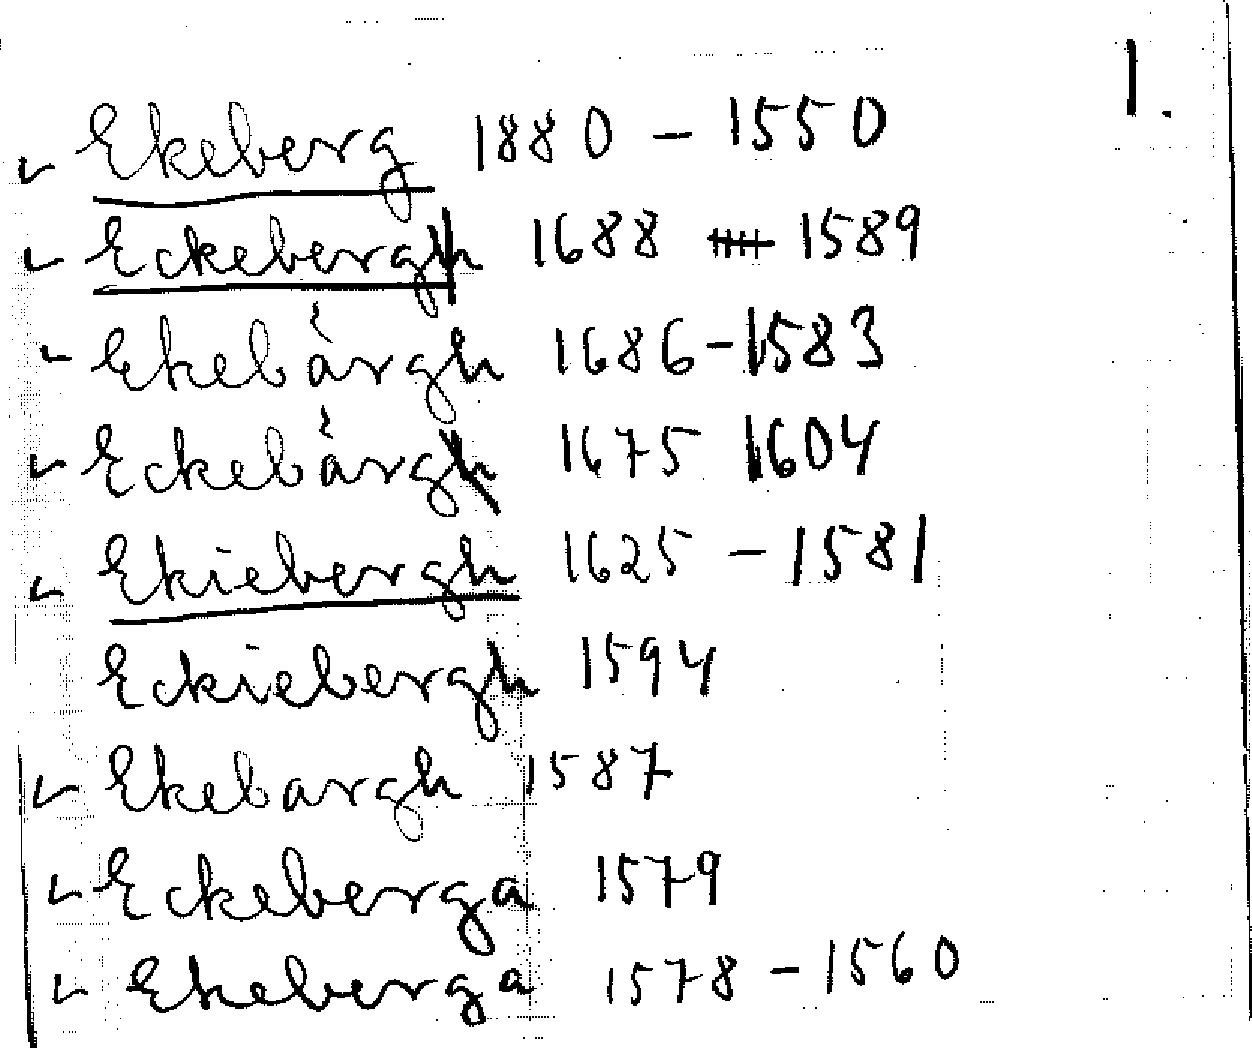 1.
Ekeberg 1880 - 1550
Eckebergh 1688 - 1589
Ekebärgh 1686 - 1583
Eckebärgh 1675 1604
Ekiebergh 1625 - 1581
Eckiebergh 1594
Ekebargh 1587
Eckeberga 1579
Ekeberga 1578 - 1560